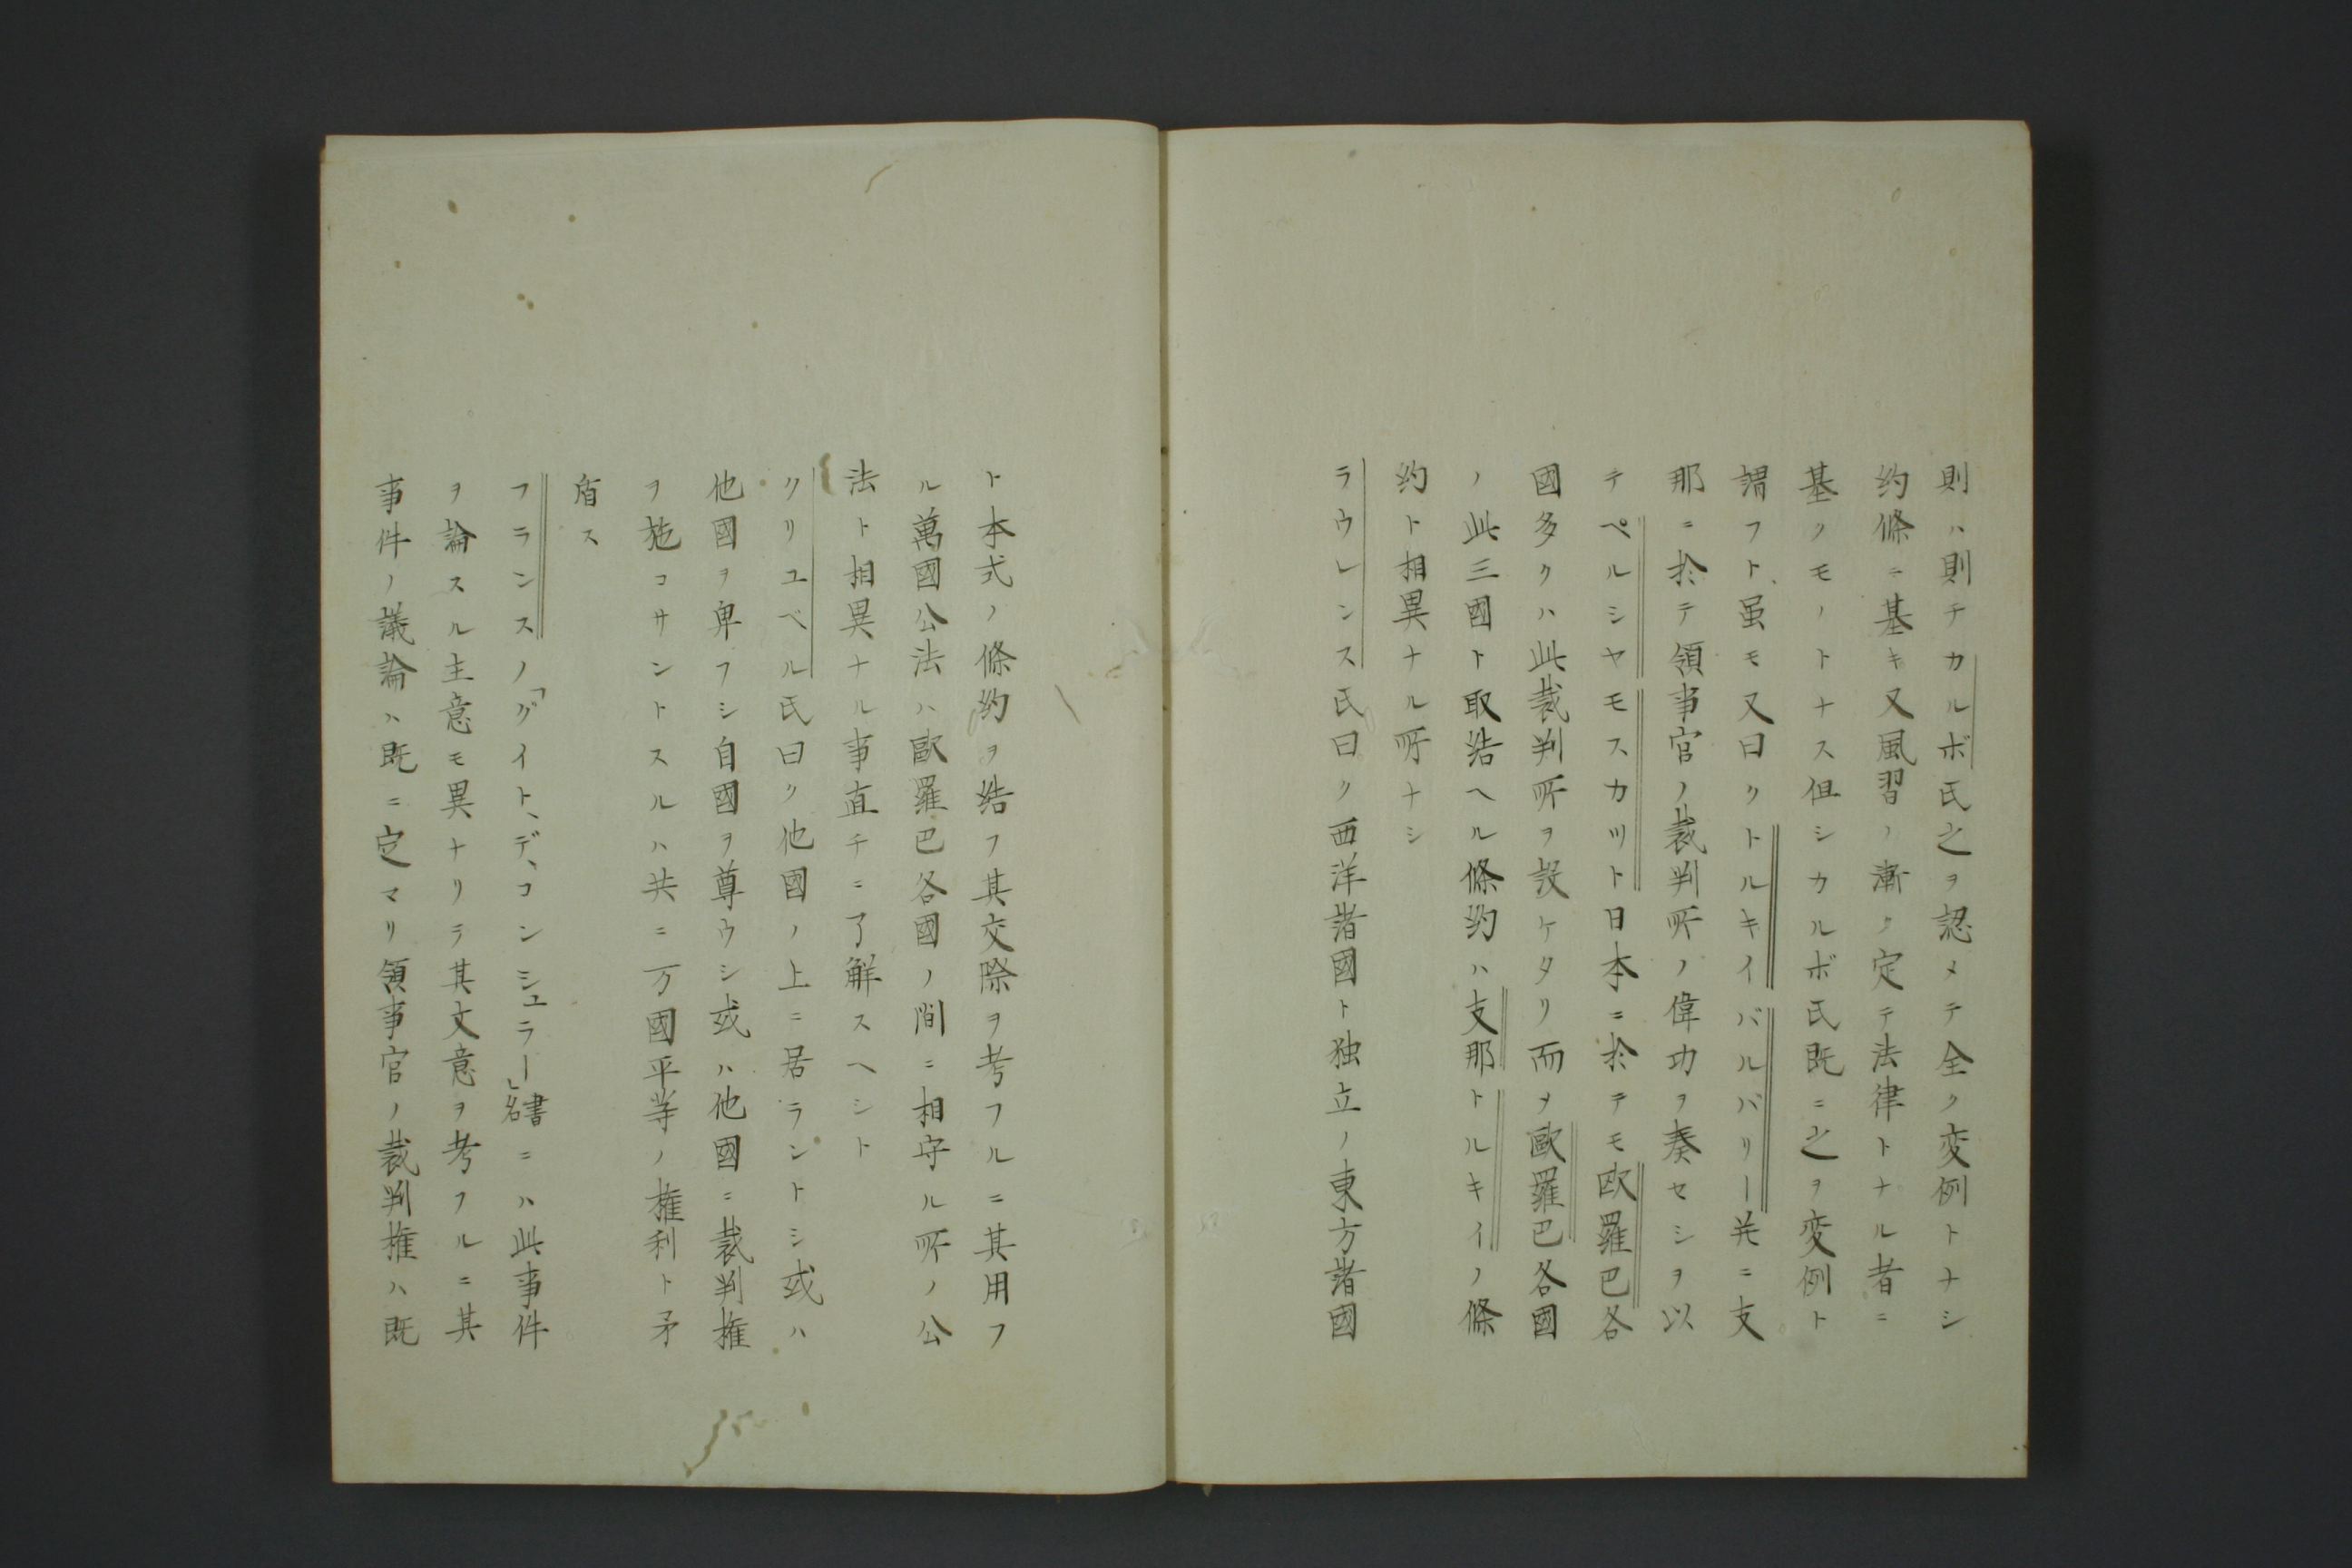 則ハ則チカルボ氏之ヲ認メテ全ク変例トナシ
約條ニ基キ又風習ノ漸ク定テ法律トナル者ニ
基クモノトナス但シカルボ氏既ニ之ヲ変例ト
謂フト、虽モ又曰クトルキイバルバリー共ニ支
那ニ於テ領事官ノ裁判所ノ偉功ヲ奏セシヲ以
テペルシヤモスカツト日本ニ於テモ欧羅巴各
國多クハ此裁判所ヲ設ケタリ而メ歐羅巴各國
ノ此三國ト取結ヘル條約ハ支那トルキイノ條
約ト相異ナル所ナシ
ラウレンス氏曰ク西洋諸國ト独立ノ東方諸國
ト本式ノ條約ヲ結フ其交際ヲ考フルニ其用フ
ル萬國公法ハ歐羅巴各國ノ間ニ相守ル所ノ公
法ト相異ナル事直チニ了解スヘシト
クリユベル氏曰ク他國ノ上ニ居ラントシ或ハ
他國ヲ卑フシ自國ヲ尊ウシ或ハ他國ニ裁判権
ヲ施コサントスルハ共ニ万國平等ノ権利ト矛
盾ス
フランスノ「グイト、デ、コンシュラー」書名ニハ此事件
ヲ論スル主意モ異ナリラ其文意ヲ考フルニ其
事件ノ議論ハ既ニ定マリ領事官ノ裁判権ハ既